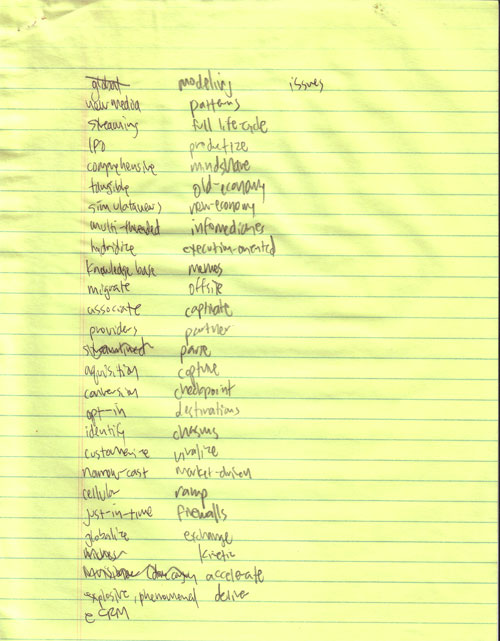 global modeling issues
new media patterns
streaming full lifecycle
IPO productize
comprehensive mindshare
tangible old-economy
simultaneous new-economy
multi-threaded infomediaries
hybridize execution-oriented
knowledge base memes
migrate offsite
associate captivate
providers partner
streamlined parse
aquisition capture
conversion checkpoint
opt-in destinations
identify chasms
customerize viralize
narrow-cast market-driven
cellular ramp
just-in-time firewalls
globalize exchange
kinetic
accelerate
explosive, phenomenal deliver
eCRM